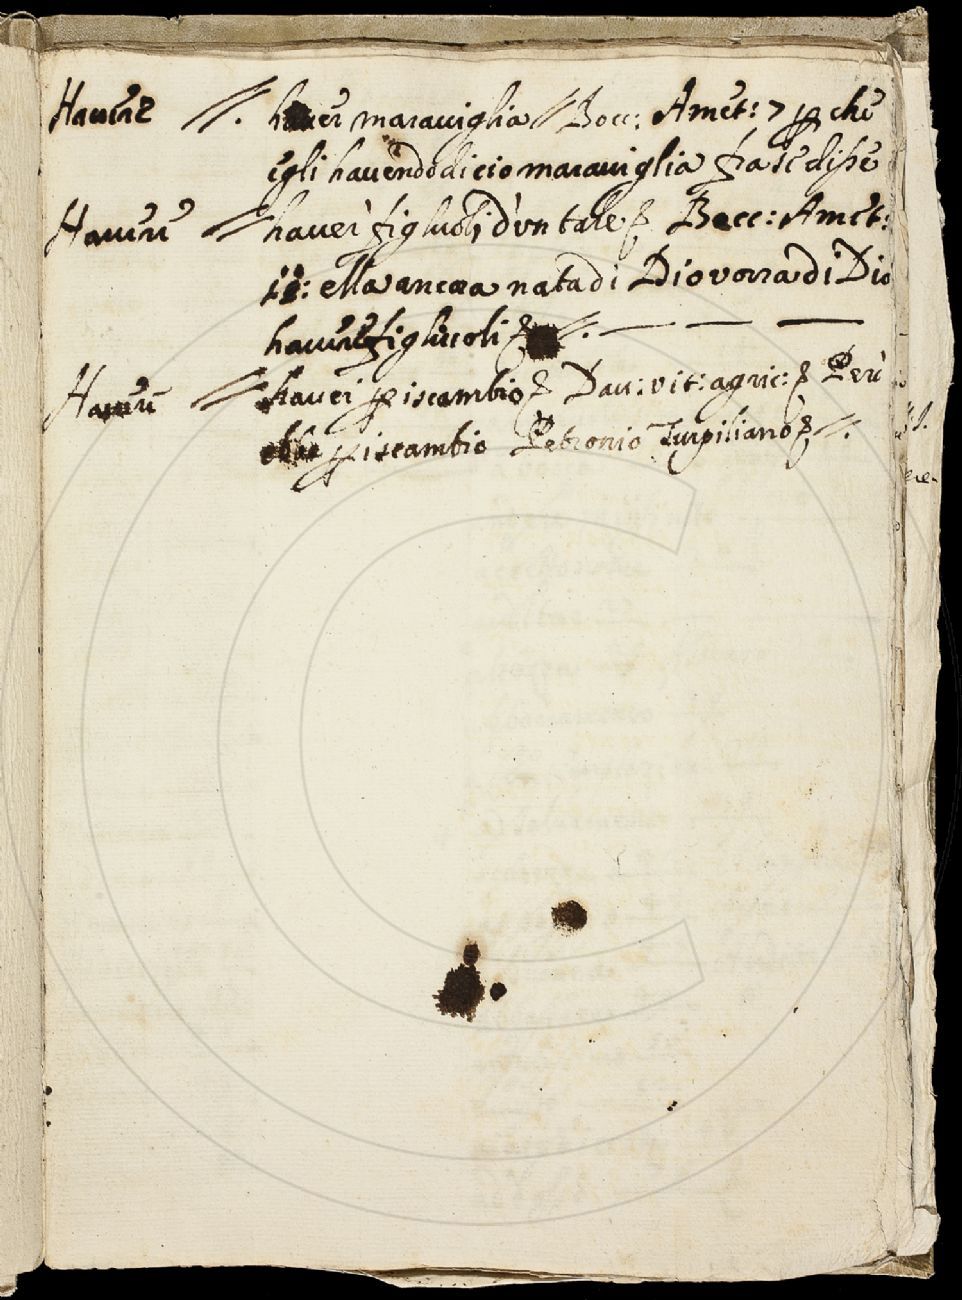 Hauere //. hauer marauiglia // Bocc: Amet: 7 ꝑ che
egli hauendo di cio marauiglia fra se disse
Hauere // hauer figliuoli d'un tale // Bocc: Amet:
ella ancora nata di Dio vorra di Dio
hauere figliuoli //. — — —
Hauer // hauer ꝑ iscambio // Dau: vit: agric: // Però
ebbe ꝑ iscambio Petronio Turpiliano //.